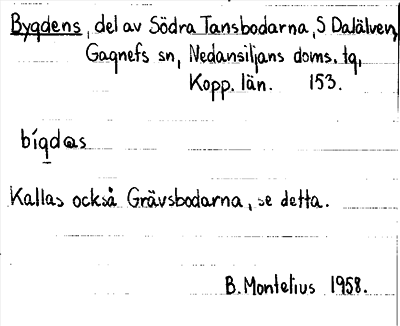 Bygdens, del av Södra Tansbodarna, S Dalälven,
Gagnefs sn, Nedansiljans doms. tg,
Kopp. län. 153.
bígdəs
Kallas också Grävsbodarna, se detta.
B. Montelius 1958.